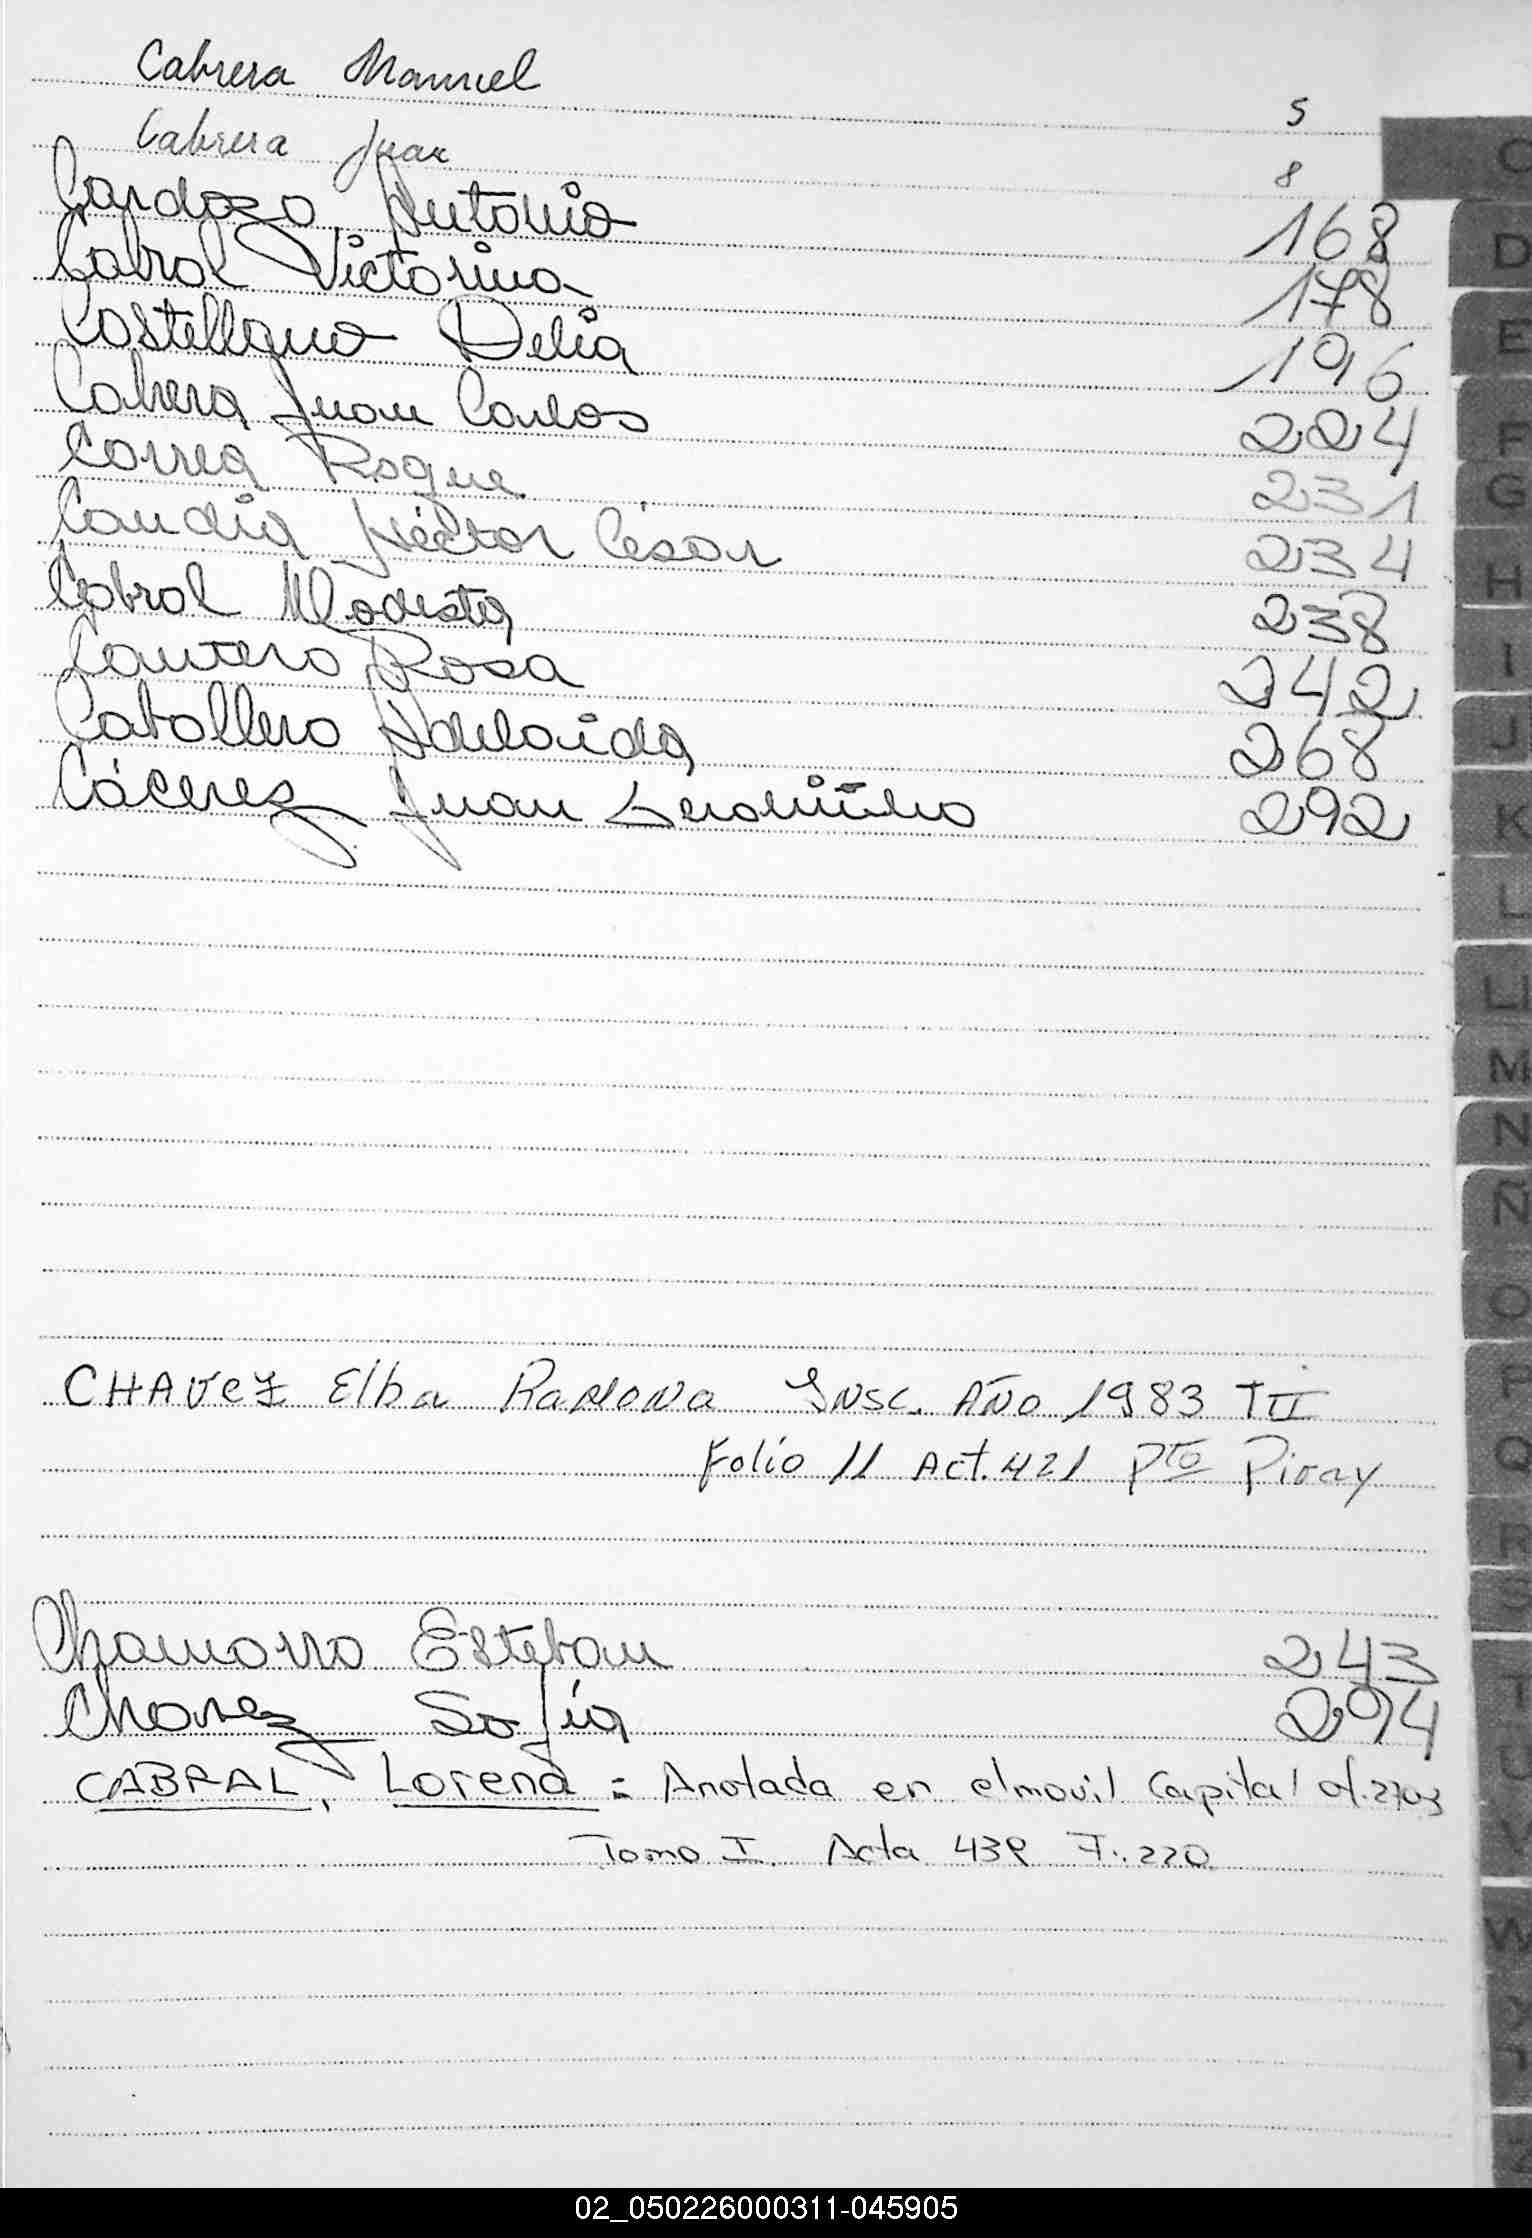 Cabrera Manuel 5
Cabrera Juan 8
Cardozo Antonio 168
Cabral Victorina 178
Castellano Delia 196
Cabrera Juan Carlos 224
Correa Roque 231
Candia Héctor César 234
Cabral Modesta 238
Cantero Rosa 242
Caballero Adelaida 268
Cácerez Juan Geronimo 292
CHAVEZ Elba RAMONA INSC. AÑO 1983 TII
Folio 11 Act. 421 Pto Piray
Chamorro Esteban 243
Chavez Sofía 294
CABRAL, Lorena = Anotada en el movil Capital of. 2703
Tomo I. Acta 439 F. 220
C
D
E
F
G
H
I
J
K
L
LL
M
N
Ñ
O
P
Q
R
S
T
U
V
W
Z
02_050226000311-045905